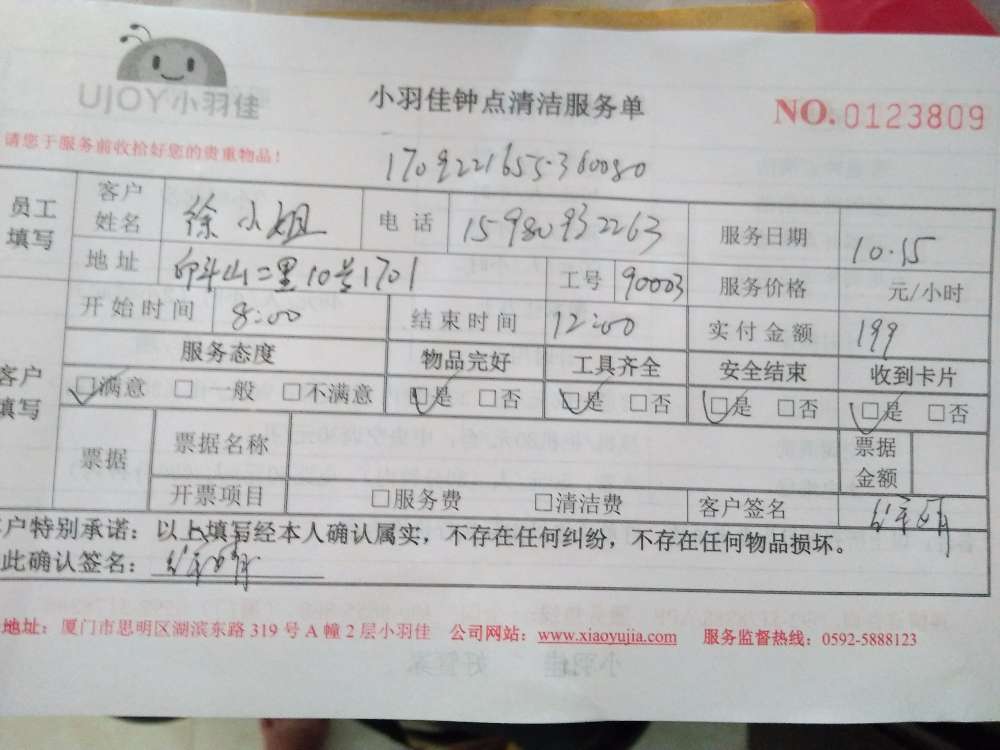 UJOY小羽佳
小羽佳钟点清洁服务单
NO.0123809
请您于服务前收拾好您的贵重物品!
1709221655360080
员工填写 客户姓名 徐小姐 电话 15980932263 服务日期 10.15
地址 仰斗山二里10号1701 工号 90003 服务价格 元/小时
客户填写 开始时间 8:00 结束时间 12:00 实付金额 199
服务态度 物品完好 工具齐全 安全结束 收到卡片
□满意 □一般 □不满意 □是 □否 □是 □否 □是 □否 □是 □否
票据 票据名称 票据金额
开票项目 □服务费 □清洁费 客户签名
户特别承诺：以上填写经本人确认属实，不存在任何纠纷，不存在任何物品损坏。
此确认签名：
地址：厦门市思明区湖滨东路319号A幢2层小羽佳 公司网站：www.xiaoyujia.com 服务监督热线：0592-5888123